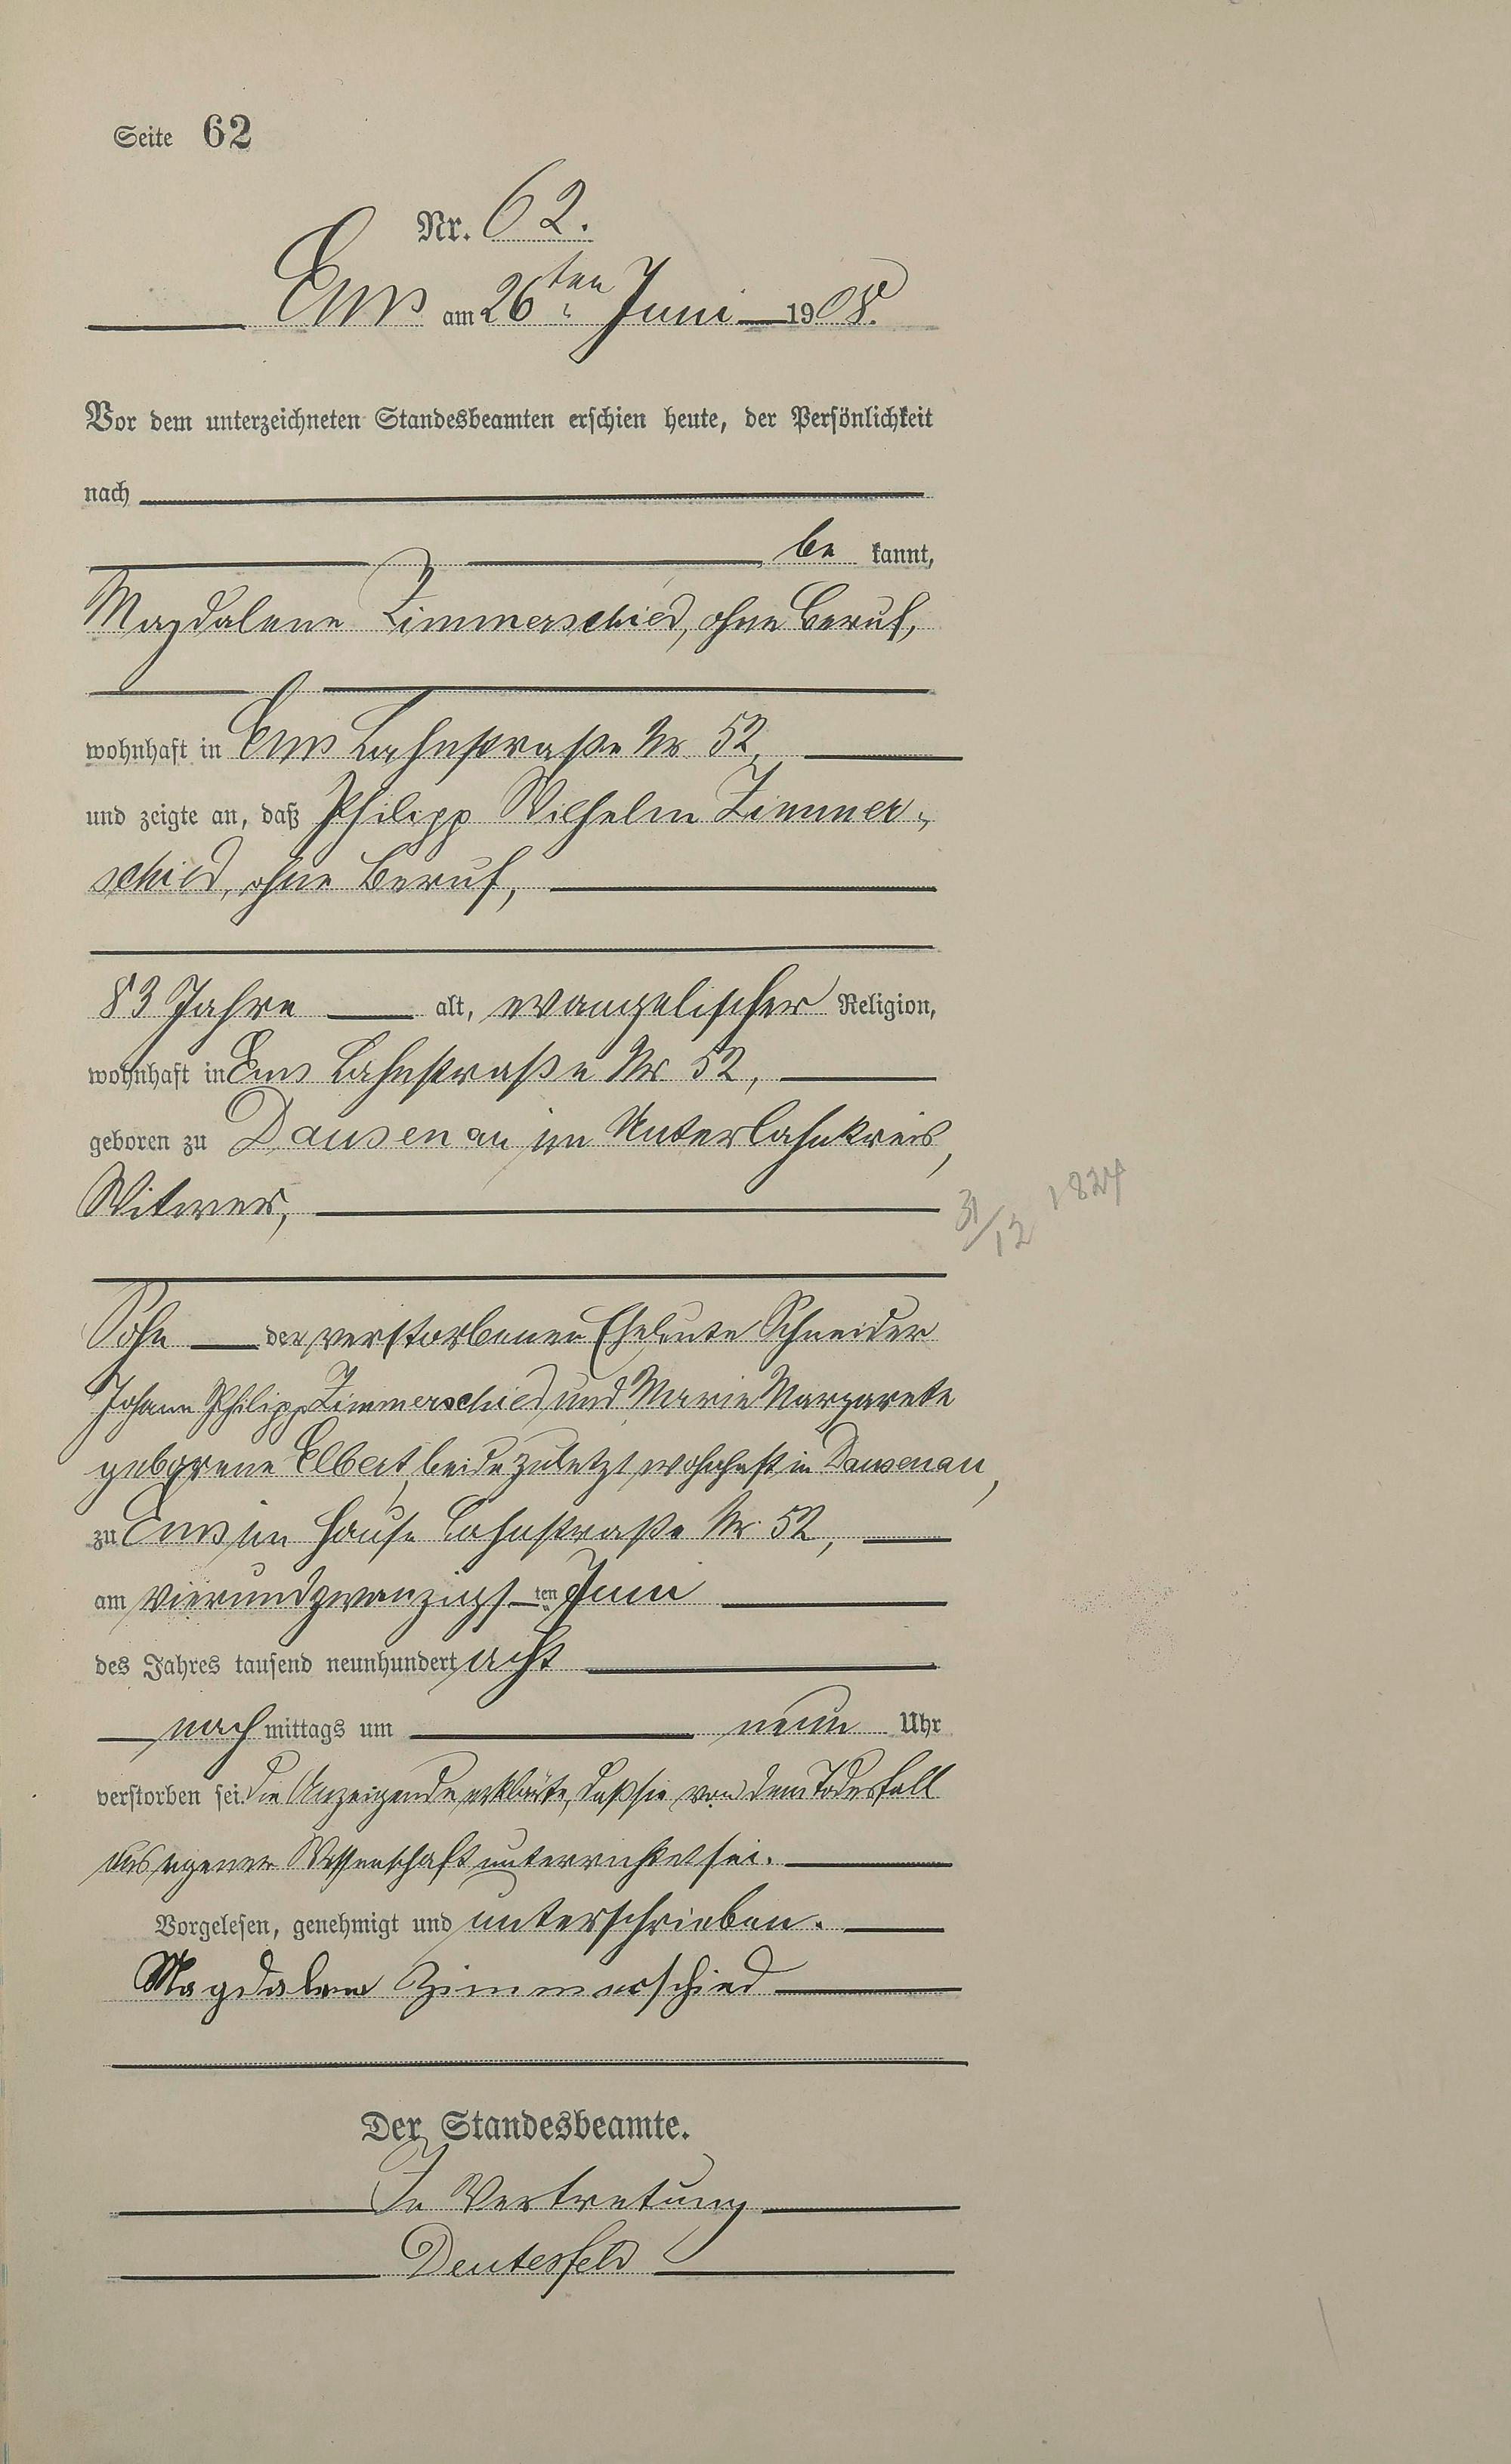 Seite 62
Nr. 62.
Ems am 26ten Juni 1908.
Vor dem unterzeichneten Standesbeamten erschien heute, der Persönlichkeit
nach
be kannt,
Magdalene Zimmerschied, ohne Beruf,
wohnhaft in Ems Lahnstraße Nr. 52,
und zeigte an, daß Philipp Wilhelm Zimmer-
schied, ohne Beruf,
83 Jahre alt, evangelischer Religion,
wohnhaft in Ems Lahnstraße Nr. 52,
geboren zu Dausenau im Unterlahnkreis,
Witwer,
31/12 1824
Sohn der verstorbenen Eheleute Schneider
Johann Philipp Zimmerschied und Marie Margarete
geborene Elbert, beide zuletzt wohnhaft in Dausenau,
zu Ems im Hause Lahnstraße Nr. 52,
am vierundzwanzigsten Juni
des Jahres tausend neunhundert acht
nach mittags um neun Uhr
verstorben sei. Die Anzeigende erklärte, daß sie von dem Todesfall
aus eigener Wissenschaft unterrichtet sei.
Vorgelesen, genehmigt und unterschrieben.
Magdalena Zimmerschied
Der Standesbeamte.
In Vertretung
Deutesfeld